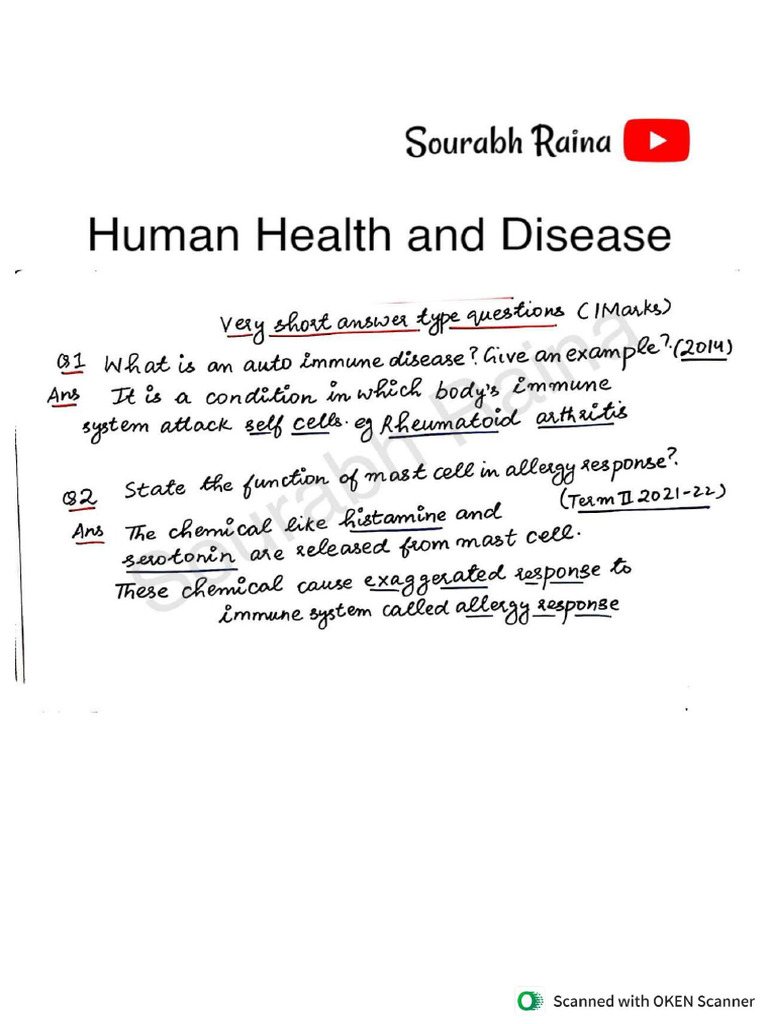 Sourabh Raina
Human Health and Disease
Very short answer type questions (1Marks)
Q1 What is an auto immune disease? Give an example? (2014)
Ans It is a condition in which body's immune
system attack self cells. eg Rheumatoid arthritis
Q2 State the function of mast cell in allergy response?
(Term II 2021-22)
Ans The chemical like histamine and
serotonin are released from mast cell.
These chemical cause exaggerated response to
immune system called allergy response
Sourabh Raina
Scanned with OKEN Scanner